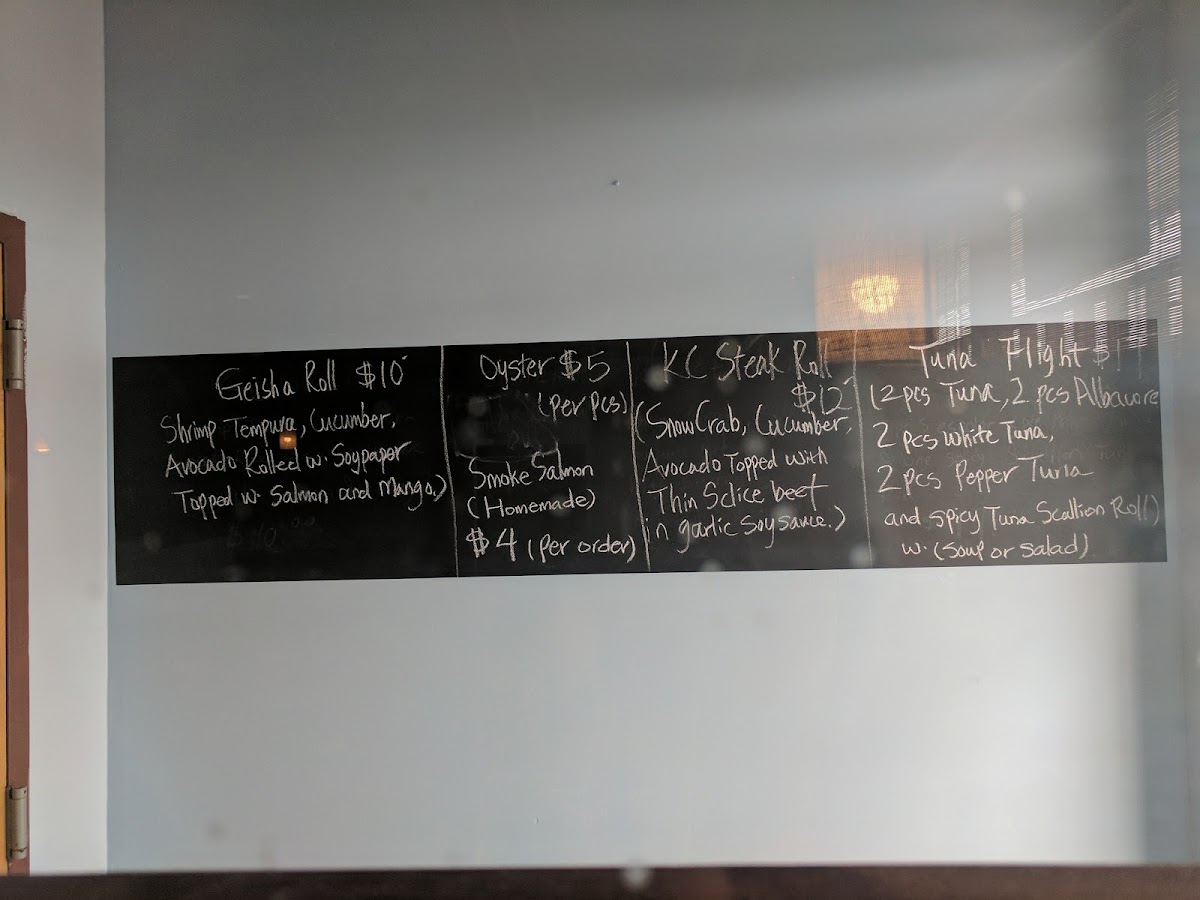 Geisha Roll $10
Shrimp Tempura, Cucumber,
Avocado Rolled w. Soypaper
Topped w. Salmon and Mango.)
Oyster $5
(per pcs)
Smoke Salmon
(Homemade)
$4 (per order)
KC Steak Roll
$12
(SnowCrab, Cucumber,
Avocado Topped with
Thin Sclice beef
in garlic Soysauce.)
Tuna Flight
(2 pcs Tuna, 2 pcs Albacore
2 pcs white Tuna,
2 pcs Pepper Tuna
and spicy Tuna Scallion Roll)
w. (Soup or salad)